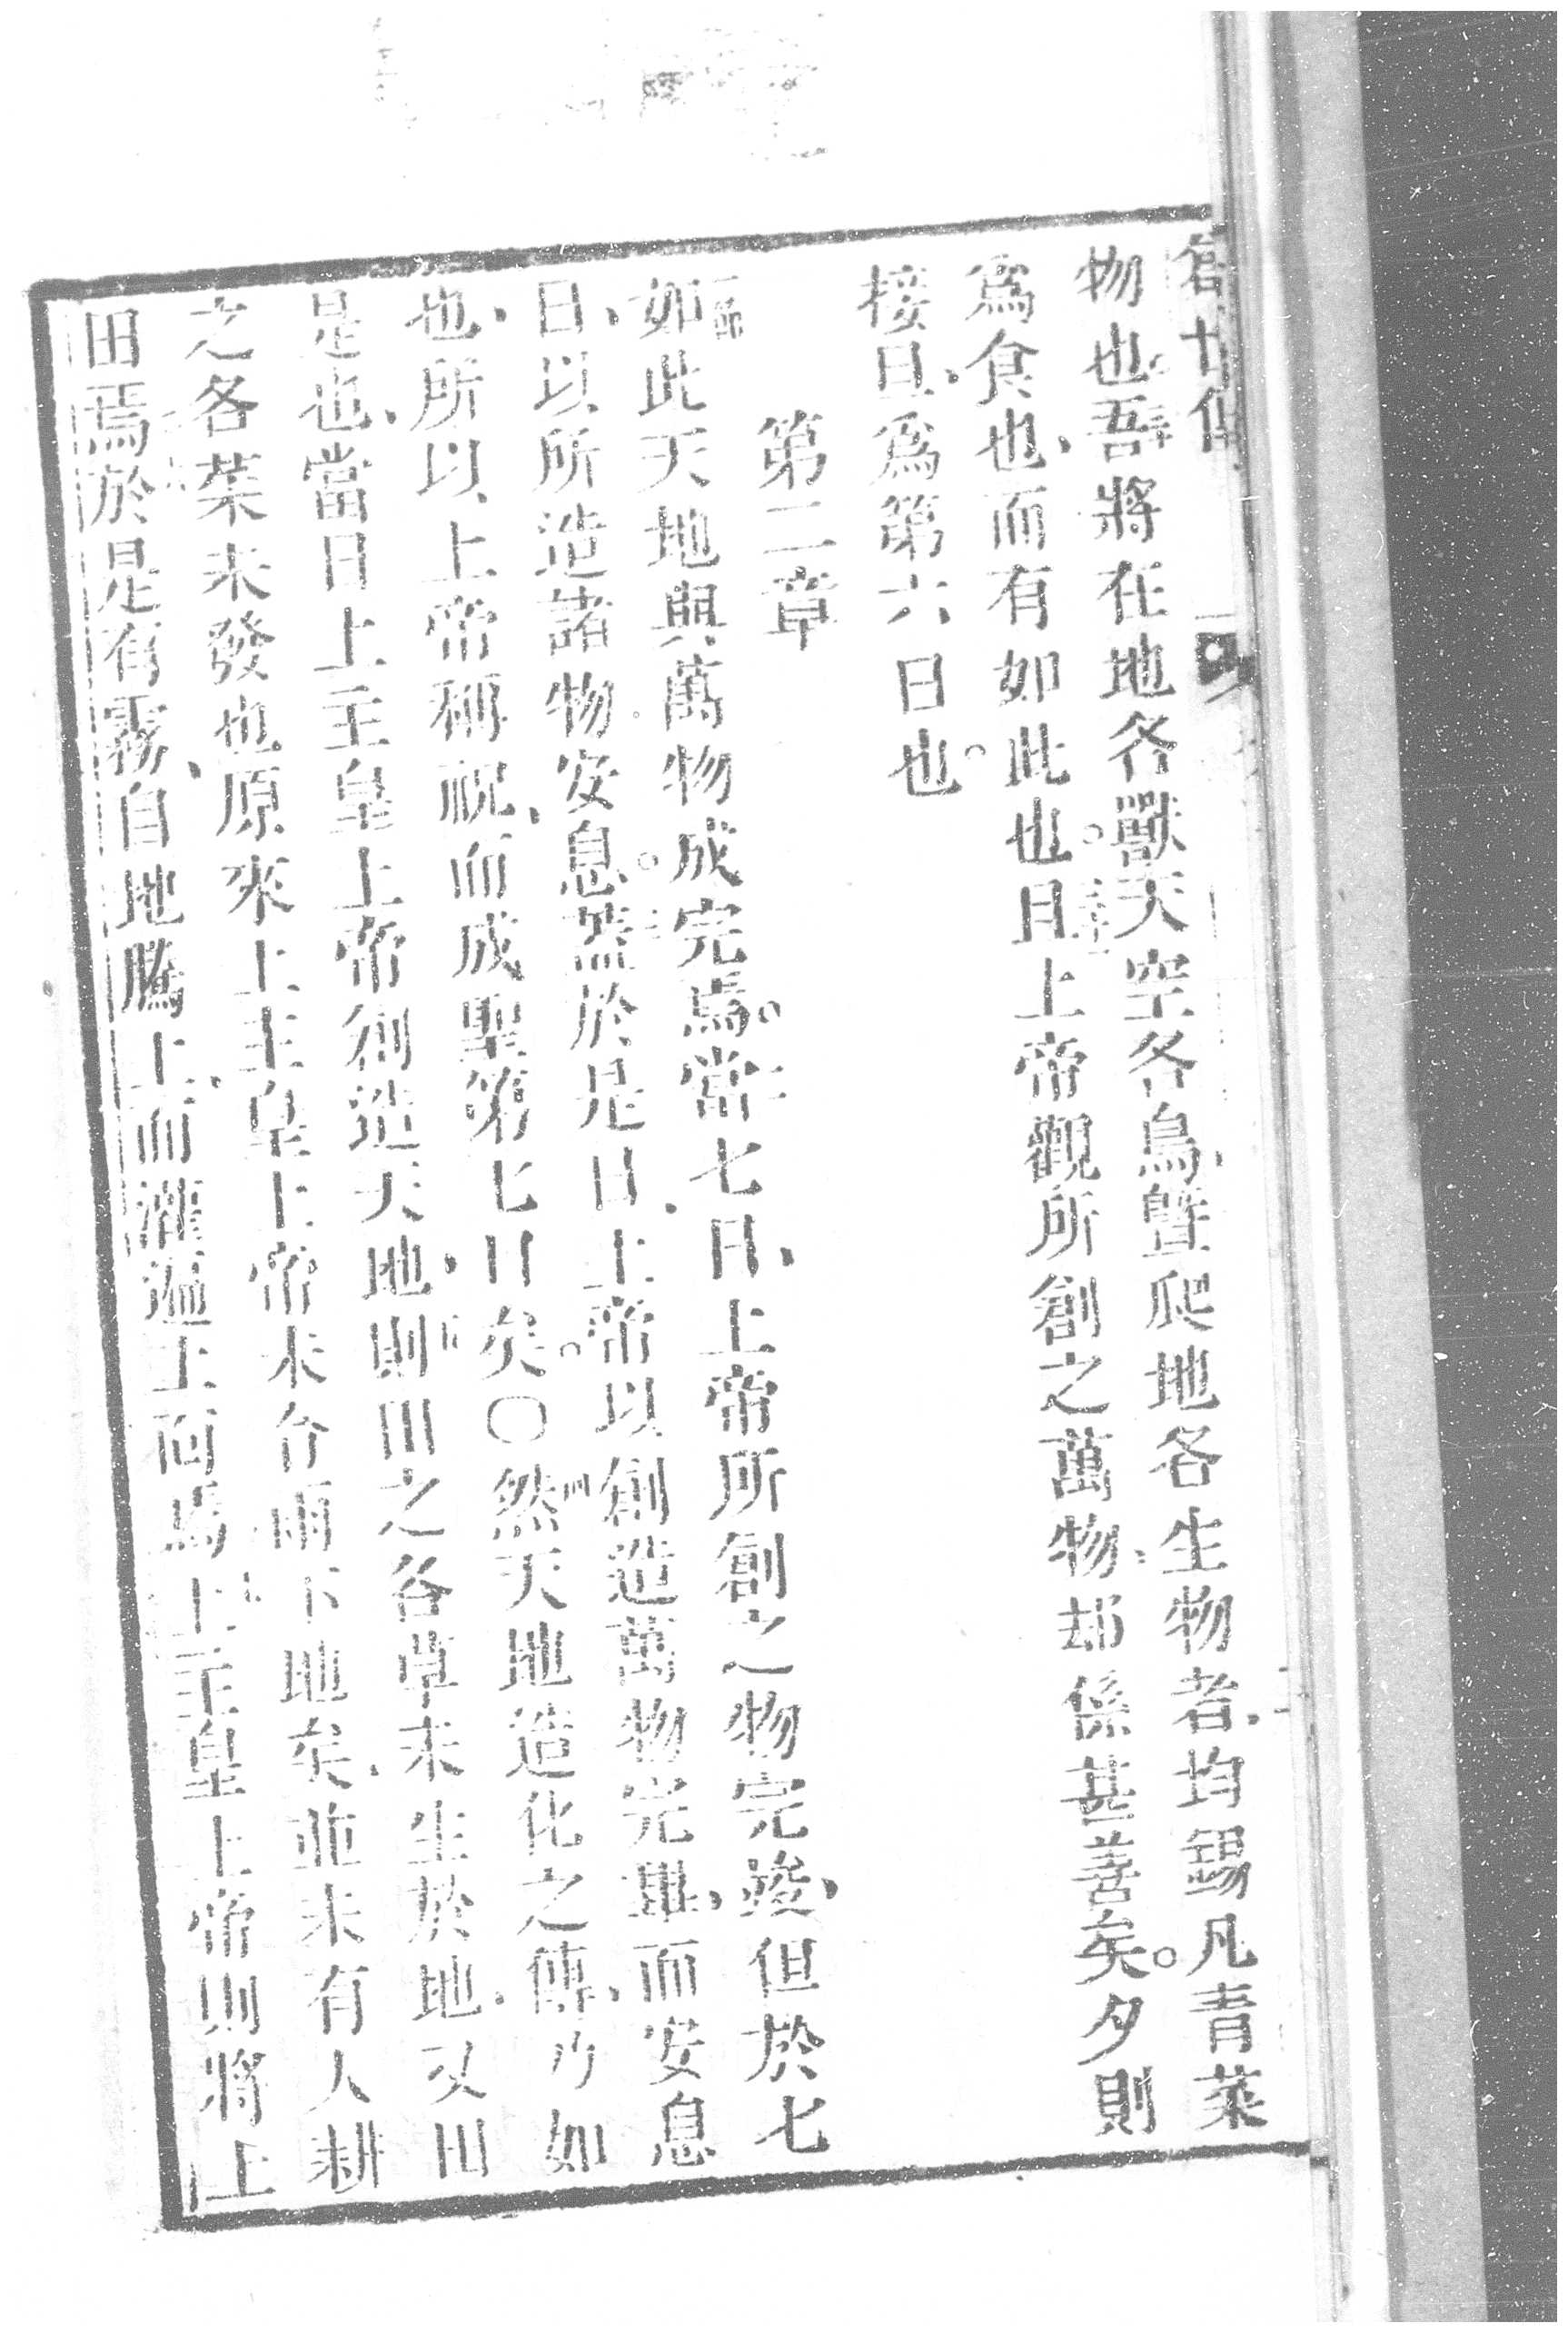 創世傳
物也。吾將在地各獸天空各鳥、曁爬地各生物者、均錫凡青菜
爲食也、而有如此也。三十一日上帝觀所創之萬物、却係甚善矣。夕則
接旦、爲第六日也。
第二章
一節如此天地與萬物成完焉。二當七日、上帝所創之物完竣、但於七
日、以所造諸物安息。三蓋於是日、上帝以創造萬物完畢、而安息
也、所以上帝稱祝、而成聖第七日矣。〇四節然天地造化之傳、乃如
是也、當日上主皇上帝創造天地、五節則田之各草未生於地、又田
之各菜未發也原來上主皇上帝未令雨下地矣、並未有人耕
田焉六於是有霧、自地騰上、而灌遍土面焉七上主皇上帝則將土